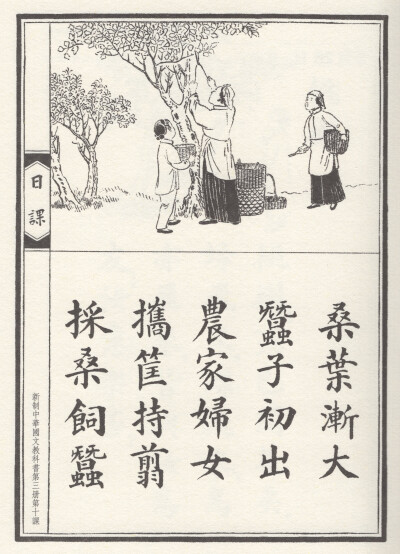 桑葉漸大
蠶子初出
農家婦女
攜筐持翦
採桑飼蠶
日課
新制中華國文教科書第三冊第十課